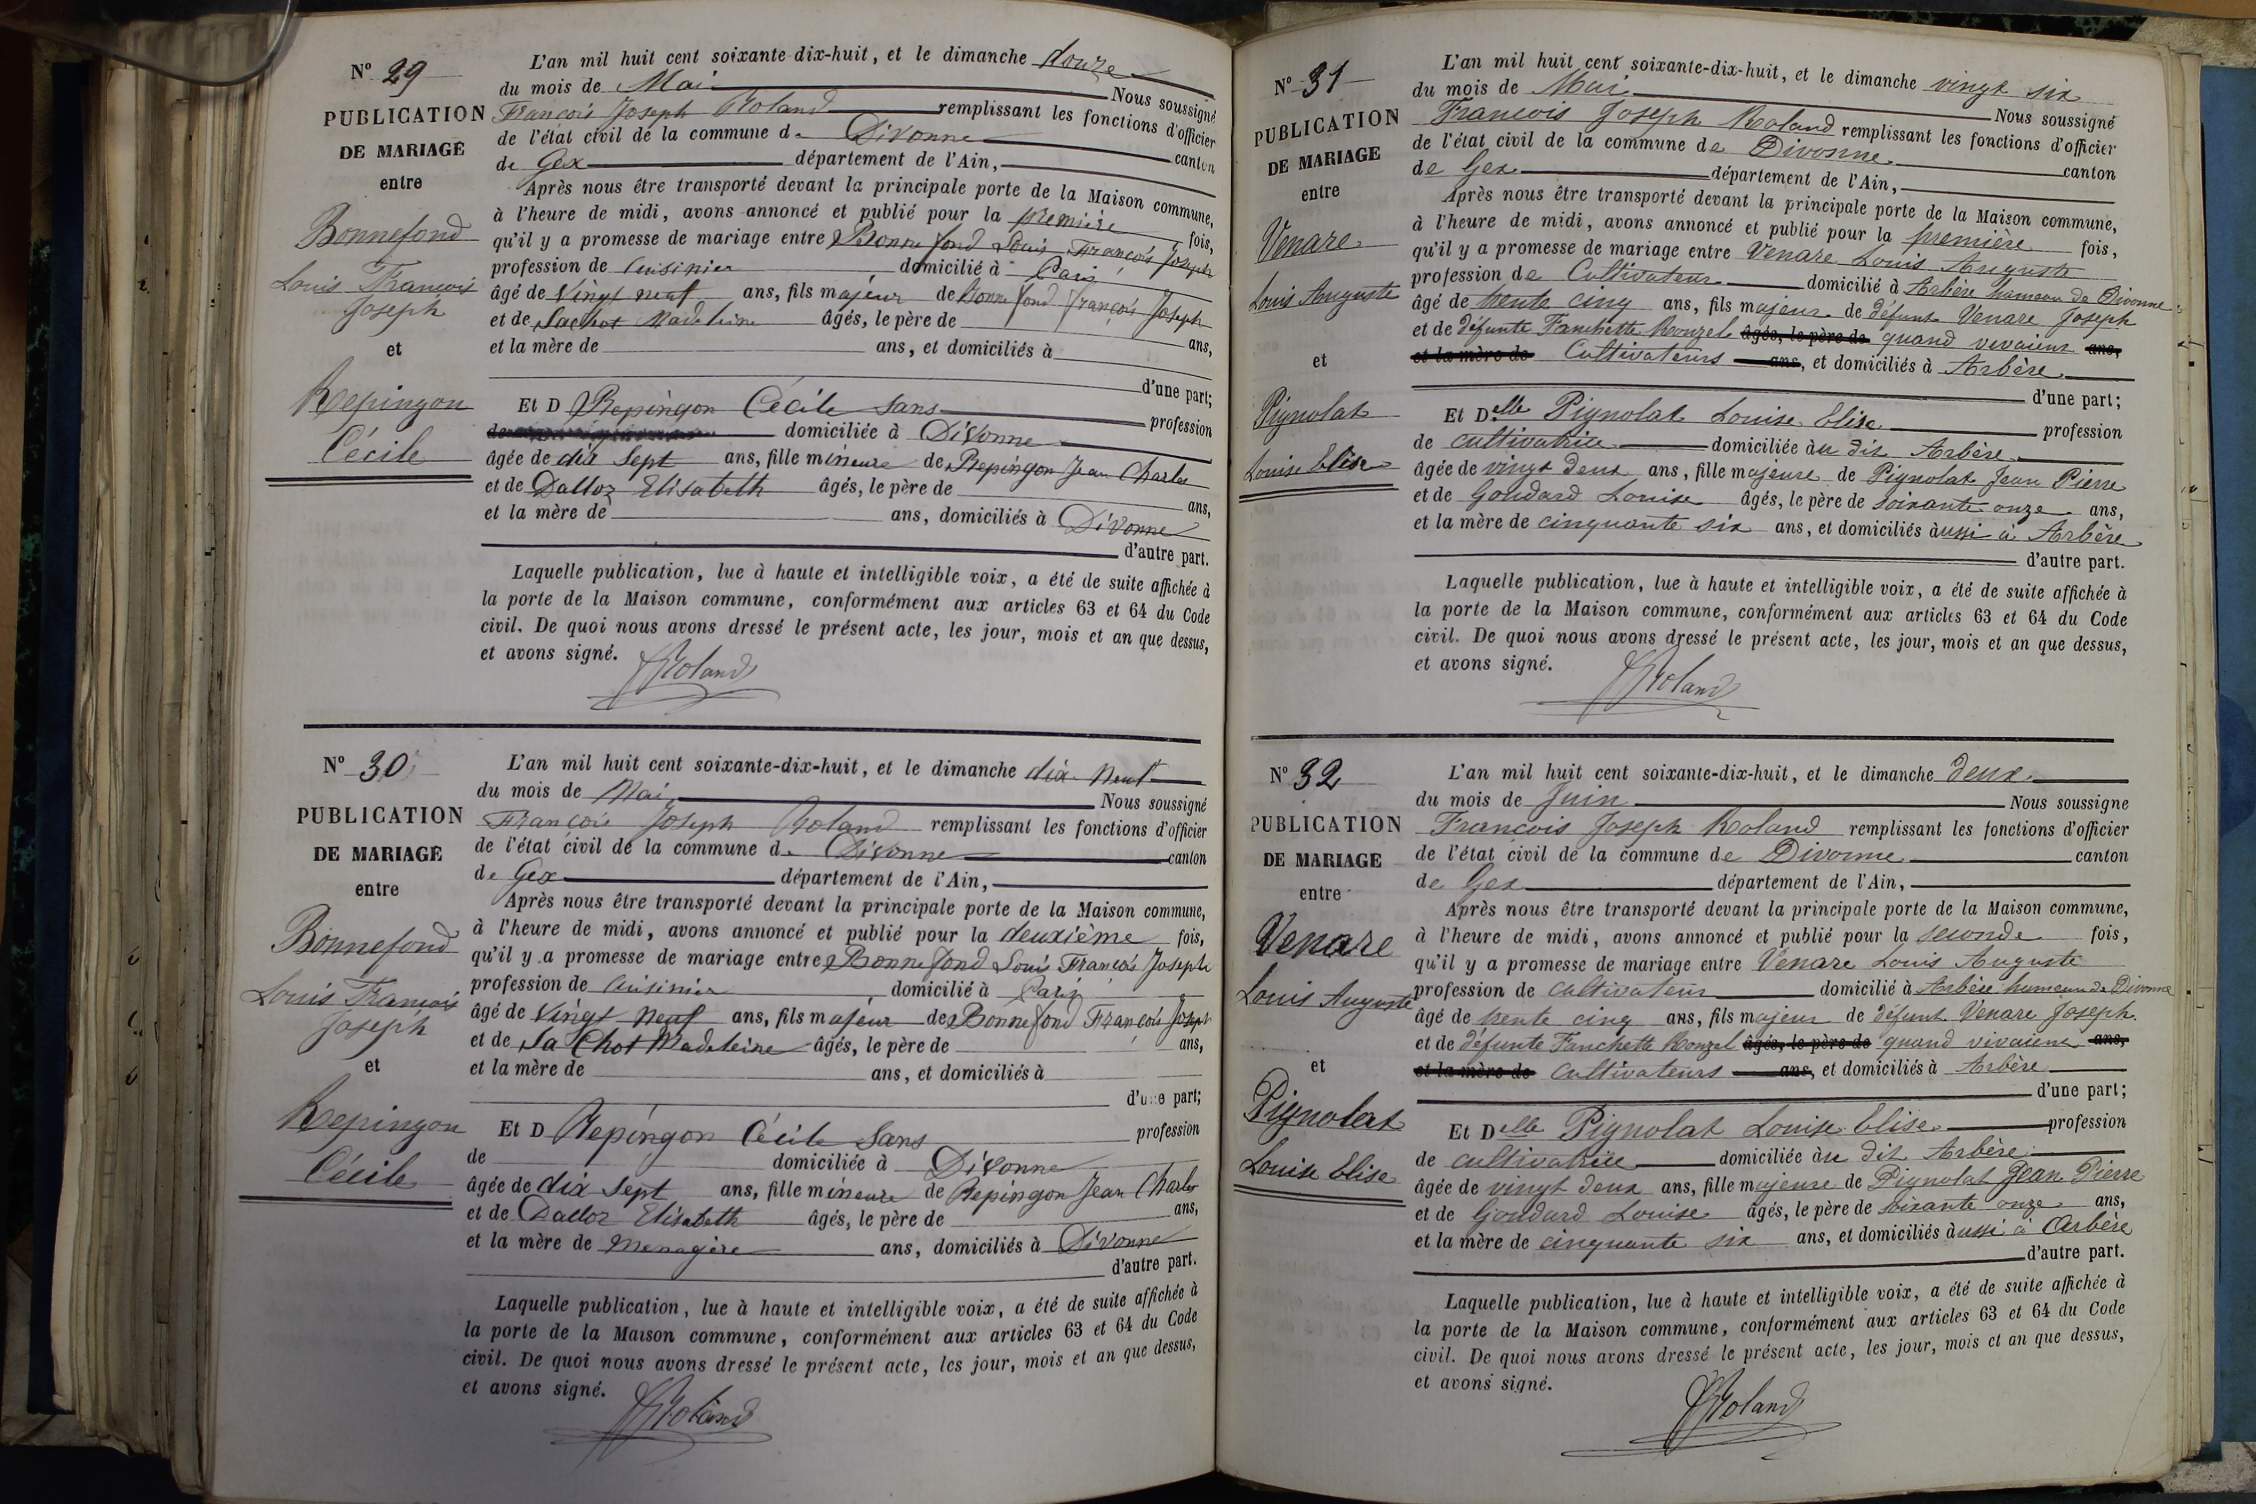 N° 29
PUBLICATION
DE MARIAGE
entre
Bonnefond
Louis François
Joseph
et
Repingon
Cécile
L'an mil huit cent soixante-dix-huit, et le dimanche douze
du mois de Mai Nous soussigné
François Joseph Roland remplissant les fonctions d'officier
de l'état civil de la commune de Divonne canton
de Gex département de l'Ain,
Après nous être transporté devant la principale porte de la Maison commune,
à l'heure de midi, avons annoncé et publié pour la première fois,
qu'il y a promesse de mariage entre Bonnefond Louis François Joseph
profession de Cuisinier domicilié à Paris
âgé de Vingt neuf ans, fils majeur de Bonnefond François Joseph
et de Lachot Madeleine âgés, le père de ans,
et la mère de ans, et domiciliés à
d'une part;
Et D Repingon Cécile sans profession
de domiciliée à Divonne
âgée de dix sept ans, fille mineure de Repingon Jean Charles
et de Dalloz Elisabeth âgés, le père de ans,
et la mère de ans, domiciliés à Divonne
d'autre part.
Laquelle publication, lue à haute et intelligible voix, a été de suite affichée à
la porte de la Maison commune, conformément aux articles 63 et 64 du Code
civil. De quoi nous avons dressé le présent acte, les jour, mois et an que dessus,
et avons signé.
Roland
N° 30
PUBLICATION
DE MARIAGE
entre
Bonnefond
Louis François
Joseph
et
Repingon
Cécile
L'an mil huit cent soixante-dix-huit, et le dimanche dix-neuf
du mois de Mai Nous soussigné
François Joseph Roland remplissant les fonctions d'officier
de l'état civil de la commune de Divonne canton
de Gex département de l'Ain,
Après nous être transporté devant la principale porte de la Maison commune,
à l'heure de midi, avons annoncé et publié pour la deuxième fois,
qu'il y a promesse de mariage entre Bonnefond Louis François Joseph
profession de Cuisinier domicilié à Paris
âgé de Vingt neuf ans, fils majeur de Bonnefond François Joseph
et de La Chot Madeleine âgés, le père de ans,
et la mère de ans, et domiciliés à
d'une part;
Et D Repingon Cécile sans profession
de domiciliée à Divonne
âgée de dix sept ans, fille mineure de Repingon Jean Charles
et de Dalloz Elisabeth âgés, le père de ans,
et la mère de Menagère ans, domiciliés à Divonne
d'autre part.
Laquelle publication, lue à haute et intelligible voix, a été de suite affichée à
la porte de la Maison commune, conformément aux articles 63 et 64 du Code
civil. De quoi nous avons dressé le présent acte, les jour, mois et an que dessus,
et avons signé.
Roland
N° 31
PUBLICATION
DE MARIAGE
entre
Venare
Louis Auguste
et
Pignolat
Louise Elise
L'an mil huit cent soixante-dix-huit, et le dimanche vingt six
du mois de Mai Nous soussigné
François Joseph Roland remplissant les fonctions d'officier
de l'état civil de la commune de Divonne canton
de Gex département de l'Ain,
Après nous être transporté devant la principale porte de la Maison commune,
à l'heure de midi, avons annoncé et publié pour la première fois,
qu'il y a promesse de mariage entre Venare Louis Auguste
profession de Cultivateur domicilié à Arbère hameau de Divonne
âgé de trente cinq ans, fils majeur de défunt Venare Joseph
et de défunte Fanchette Rouzel âgés, le père de quand vivaient ans,
et la mère de Cultivateurs ans, et domiciliés à Arbère
d'une part;
Et Delle Pignolat Louise Elise profession
de cultivatrice domiciliée au dit Arbère
âgée de vingt deux ans, fille majeure de Pignolat Jean Pierre
et de Goudard Louise âgés, le père de soixante-onze ans,
et la mère de cinquante six ans, et domiciliés aussi à Arbère
d'autre part.
Laquelle publication, lue à haute et intelligible voix, a été de suite affichée à
la porte de la Maison commune, conformément aux articles 63 et 64 du Code
civil. De quoi nous avons dressé le présent acte, les jour, mois et an que dessus,
et avons signé.
Roland
N° 32
PUBLICATION
DE MARIAGE
entre
Venare
Louis Auguste
et
Pignolat
Louise Elise
L'an mil huit cent soixante-dix-huit, et le dimanche deux
du mois de Juin Nous soussigné
François Joseph Roland remplissant les fonctions d'officier
de l'état civil de la commune de Divonne canton
de Gex département de l'Ain,
Après nous être transporté devant la principale porte de la Maison commune,
à l'heure de midi, avons annoncé et publié pour la seconde fois,
qu'il y a promesse de mariage entre Venare Louis Auguste
profession de cultivateur domicilié à Arbère hameau de Divonne
âgé de trente cinq ans, fils majeur de défunt Venare Joseph
et de défunte Fanchette Rouzel âgés, le père de quand vivaient ans,
et la mère de cultivateurs ans, et domiciliés à Arbère
d'une part;
Et Delle Pignolat Louise Elise profession
de cultivatrice domiciliée au dit Arbère
âgée de vingt deux ans, fille majeure de Pignolat Jean Pierre
et de Goudard Louise âgés, le père de soixante onze ans,
et la mère de cinquante six ans, et domiciliés aussi à Arbère
d'autre part.
Laquelle publication, lue à haute et intelligible voix, a été de suite affichée à
la porte de la Maison commune, conformément aux articles 63 et 64 du Code
civil. De quoi nous avons dressé le présent acte, les jour, mois et an que dessus,
et avons signé.
Roland